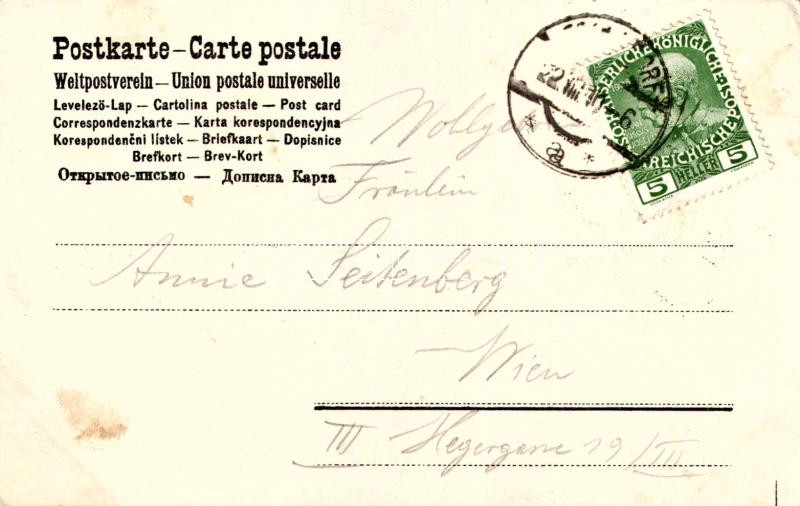 Postkarte – Carte postale
Weltpostverein – Union postale universelle
Levelezö-Lap – Cartolina postale – Post card
Correspondenzkarte – Karta korespondencyjna
Korespondenční lístek – Briefkaart – Dopisnice
Brefkort – Brev-Kort
Открытое-письмо – Дописна Карта
Fräulein
Annie Seitenberg
Wien
III Hegergasse 19/III
5 HELLER 5